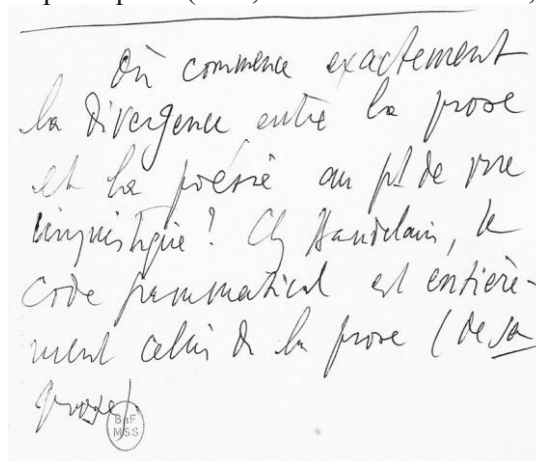 Où commence exactement
la divergence entre la prose
et la poésie au pt de vue
linguistique? Ch Baudelaire, le
code grammatical est entière-
ment celui de la prose (de sa
prose)
BnF
MSS